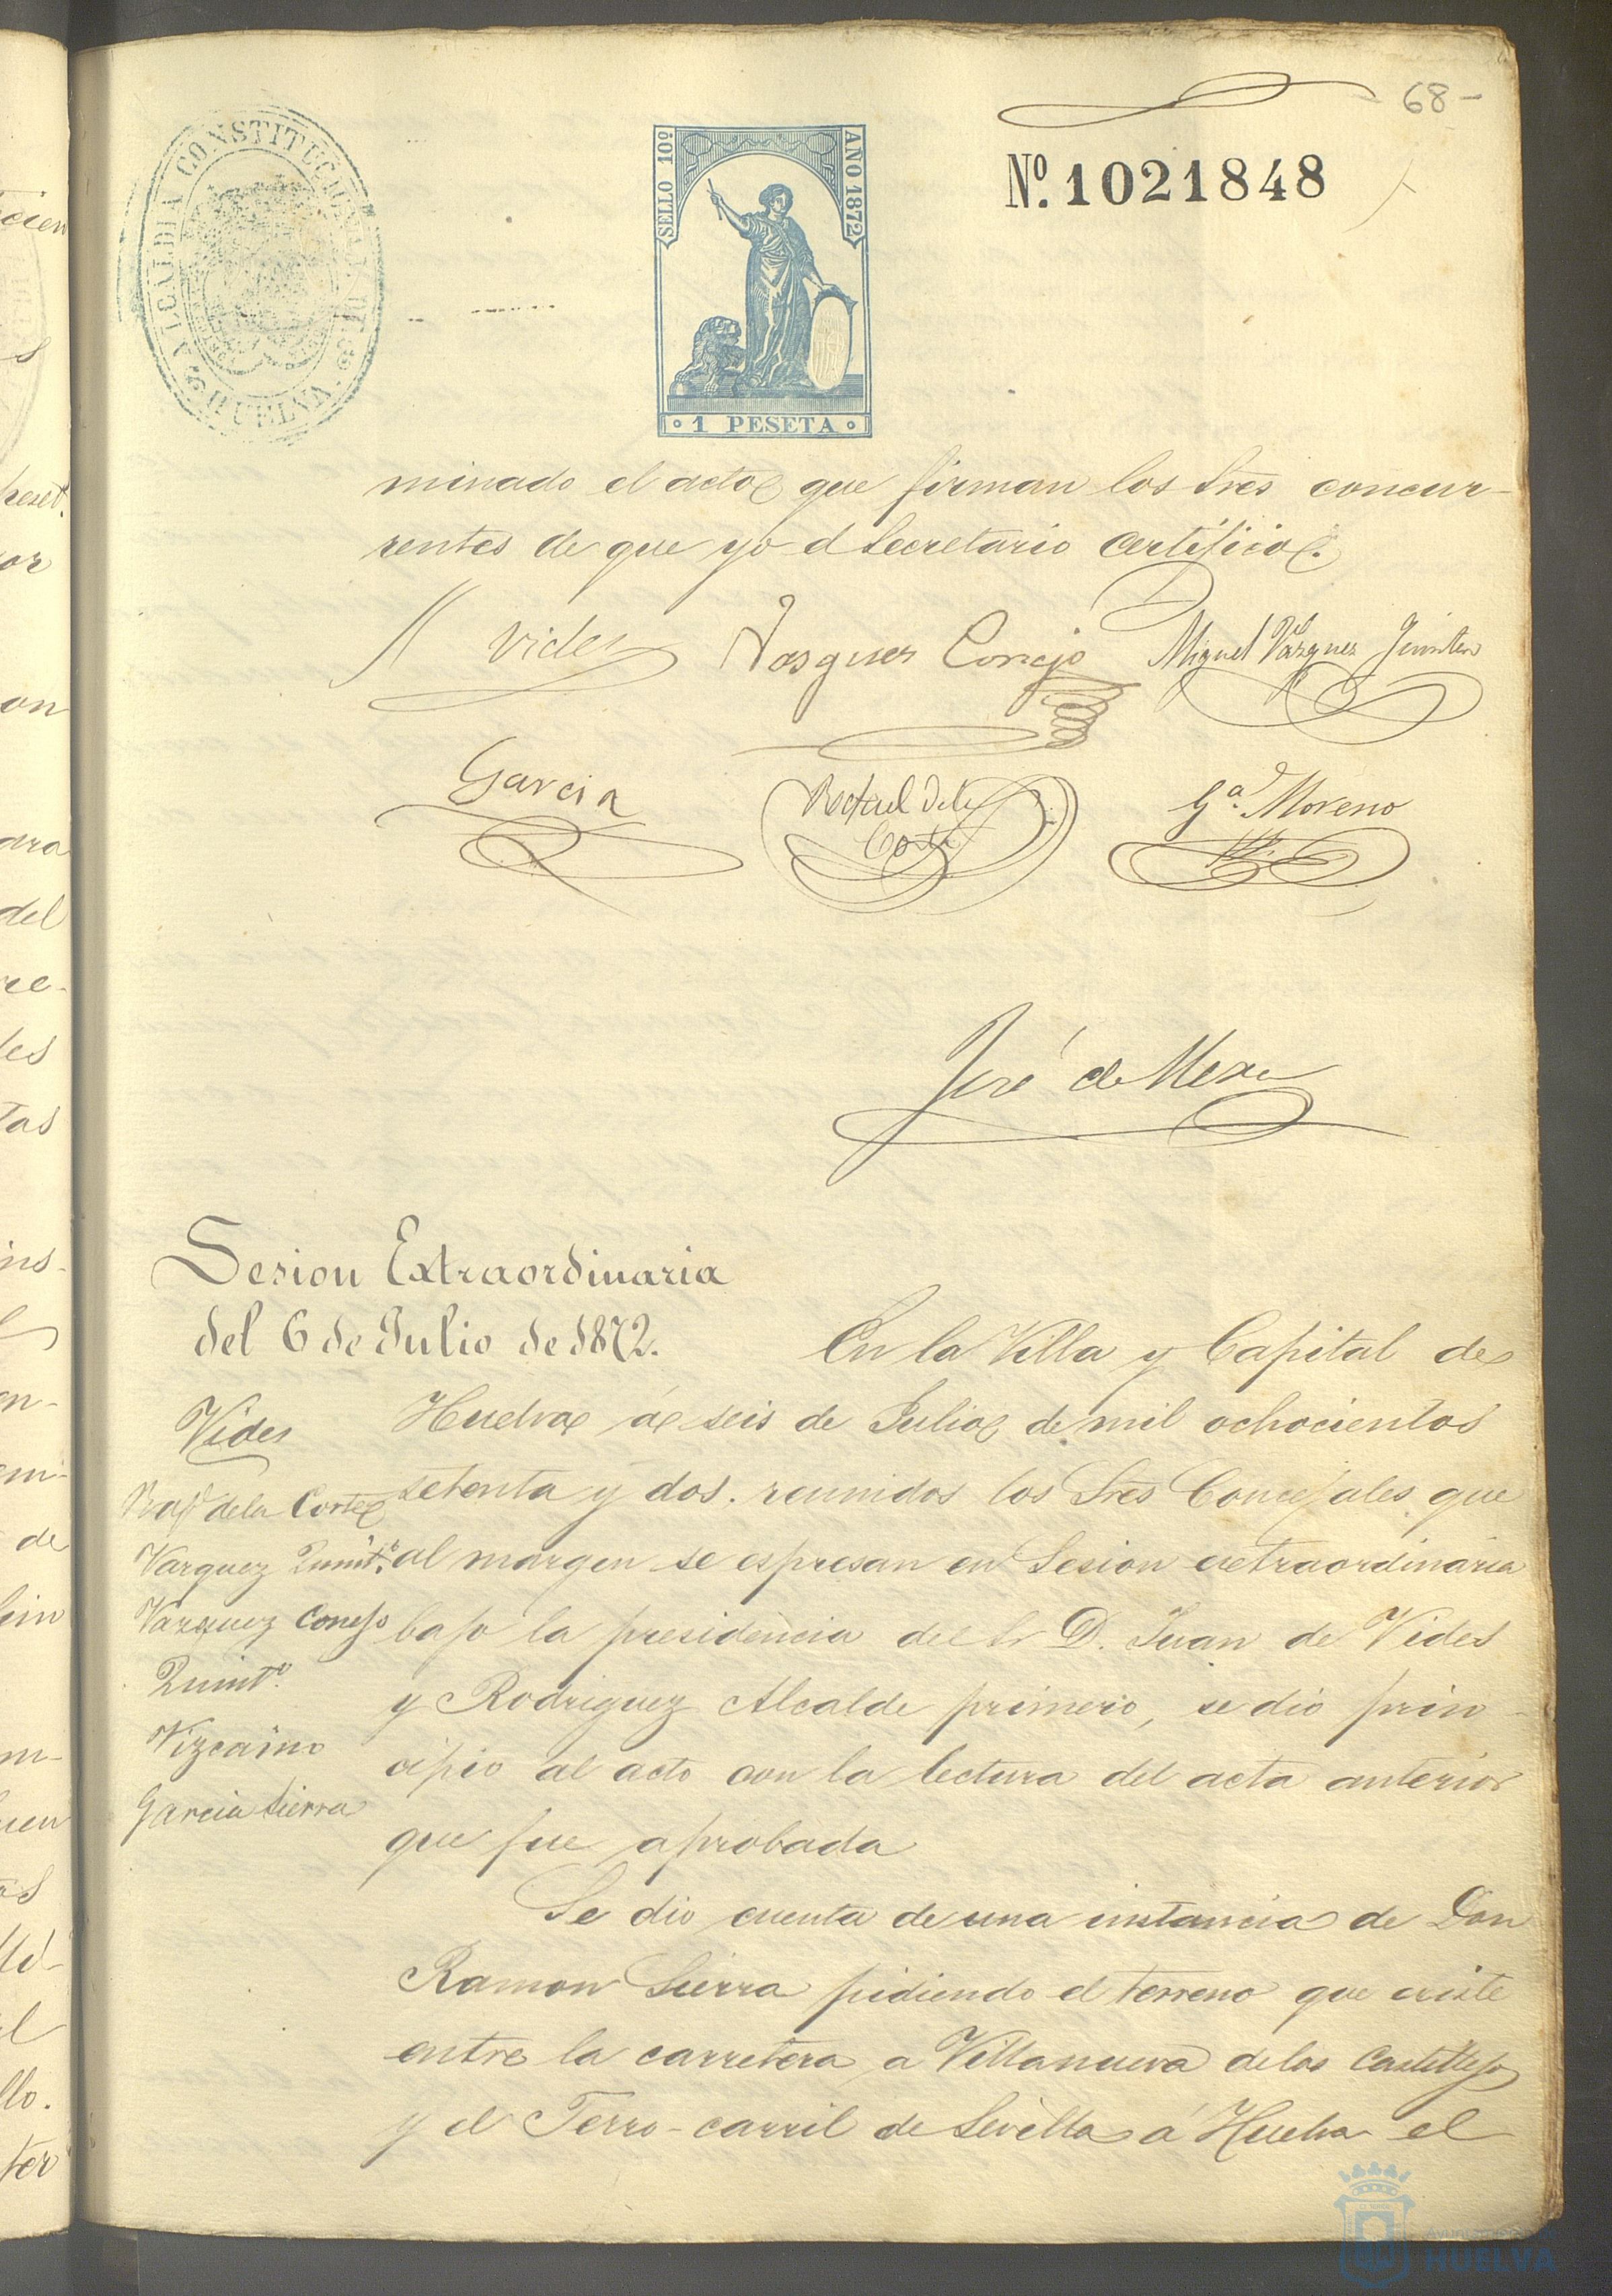 68-
ALCALDIA CONSTITUCIONAL DE HUELVA
SELLO 10º
AÑO 1872
1 PESETA
Nº. 1021848
minado el acto que firman los Sres concur-
rentes de que yo el Secretario Certifico.
Vides Vazquez Conejo Miguel Vazquez
Garcia Rafael de la Corte Gª. Moreno
José de Mexa
Sesion Extraordinaria
del 6 de Julio de 1872.
Vides
Rafl dela Corte
Vazquez Quintº.
Vazquez Conejo
Quintº.
Vizcaino
Garcia Sierra
En la Villa y Capital de
Huelva á seis de Julio de mil ochocientos
setenta y dos. reunidos los Sres Concejales que
al margen se espresan en Sesion extraordinaria
bajo la presidencia del Sr D. Juan de Vides
y Rodriguez Alcalde primero, se dio prin-
cipio al acto con la lectura del acta anterior
que fue aprobada
Se dio cuenta de una instancia de Don
Ramon Sierra pidiendo el terreno que existe
entre la carretera a Villanueva delos Castillejos
y el Ferro-carril de Sevilla á Huelva el
Ayuntamiento de
HUELVA